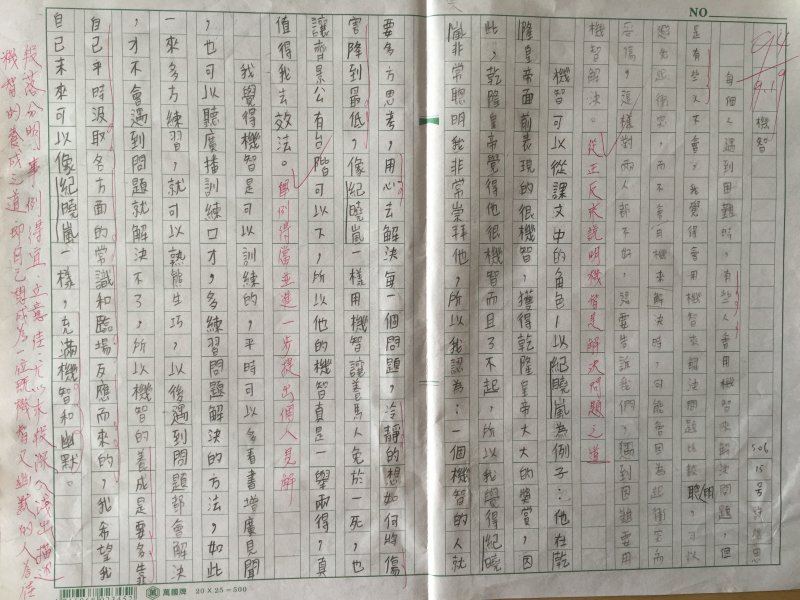 NO
94
9.19
機智
506 15號
每個人遇到困難時,有些人會用機智來解決問題,但
是有些人不會,我覺得會用機智來解決問題比較聰明,可以
避免起衝突,而不會用機來解決時,可能會因為起衝突而
受傷,這樣對兩人都不好,還要告訴我們,遇到困難要用
機智解決。
從正反來說明機智是解決問題之道
機智可以從課文中的角色,以紀曉嵐為例子:他在乾
隆皇帝面前表現的很機智,獲得乾隆皇帝大大的獎賞,因
此,乾隆皇帝覺得他很機智而且了不起,所以我覺得紀曉
嵐非常聰明我非常崇拜他,所以我認為:一個機智的人就
要多方思考,用心去解決每一個問題,冷靜的想如何將傷
害降到最低,像紀曉嵐一樣用機智讓養馬人免於一死,也
讓齊景公有台階可以下,所以他的機智真是一舉兩得,真
值得我去效法。
舉例得當並進一步提出個人見解
我覺得機智是可以訓練的,平時可以多看書增廣見聞
,也可以聽廣播訓練口才,多練習問題解決的方法,如此
一來多方練習,就可以熟能生巧,以後遇到問題都會解決
,才不會遇到問題就解決不了,所以機智的養成是要多靠
自己平時汲取各方面的常識和臨場反應而來的,我希望我
自己未來可以像紀曉嵐一樣,充滿機智和幽默。
段落分明,事例得宜,立意佳;尤以末段深入淺出描述
機智的養成之道,即自己想成為一位既機智又幽默的人為佳
萬國牌 20×25=500